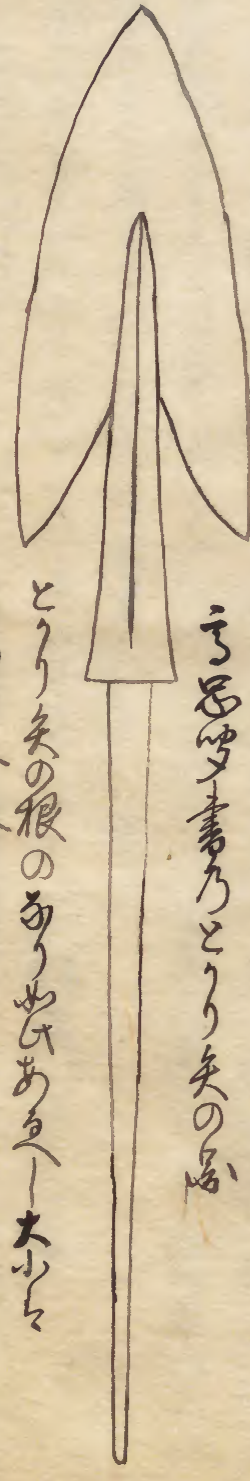 高忠聞書乃とかり矢の図
とかり矢の根のなり如此あるへし大小は